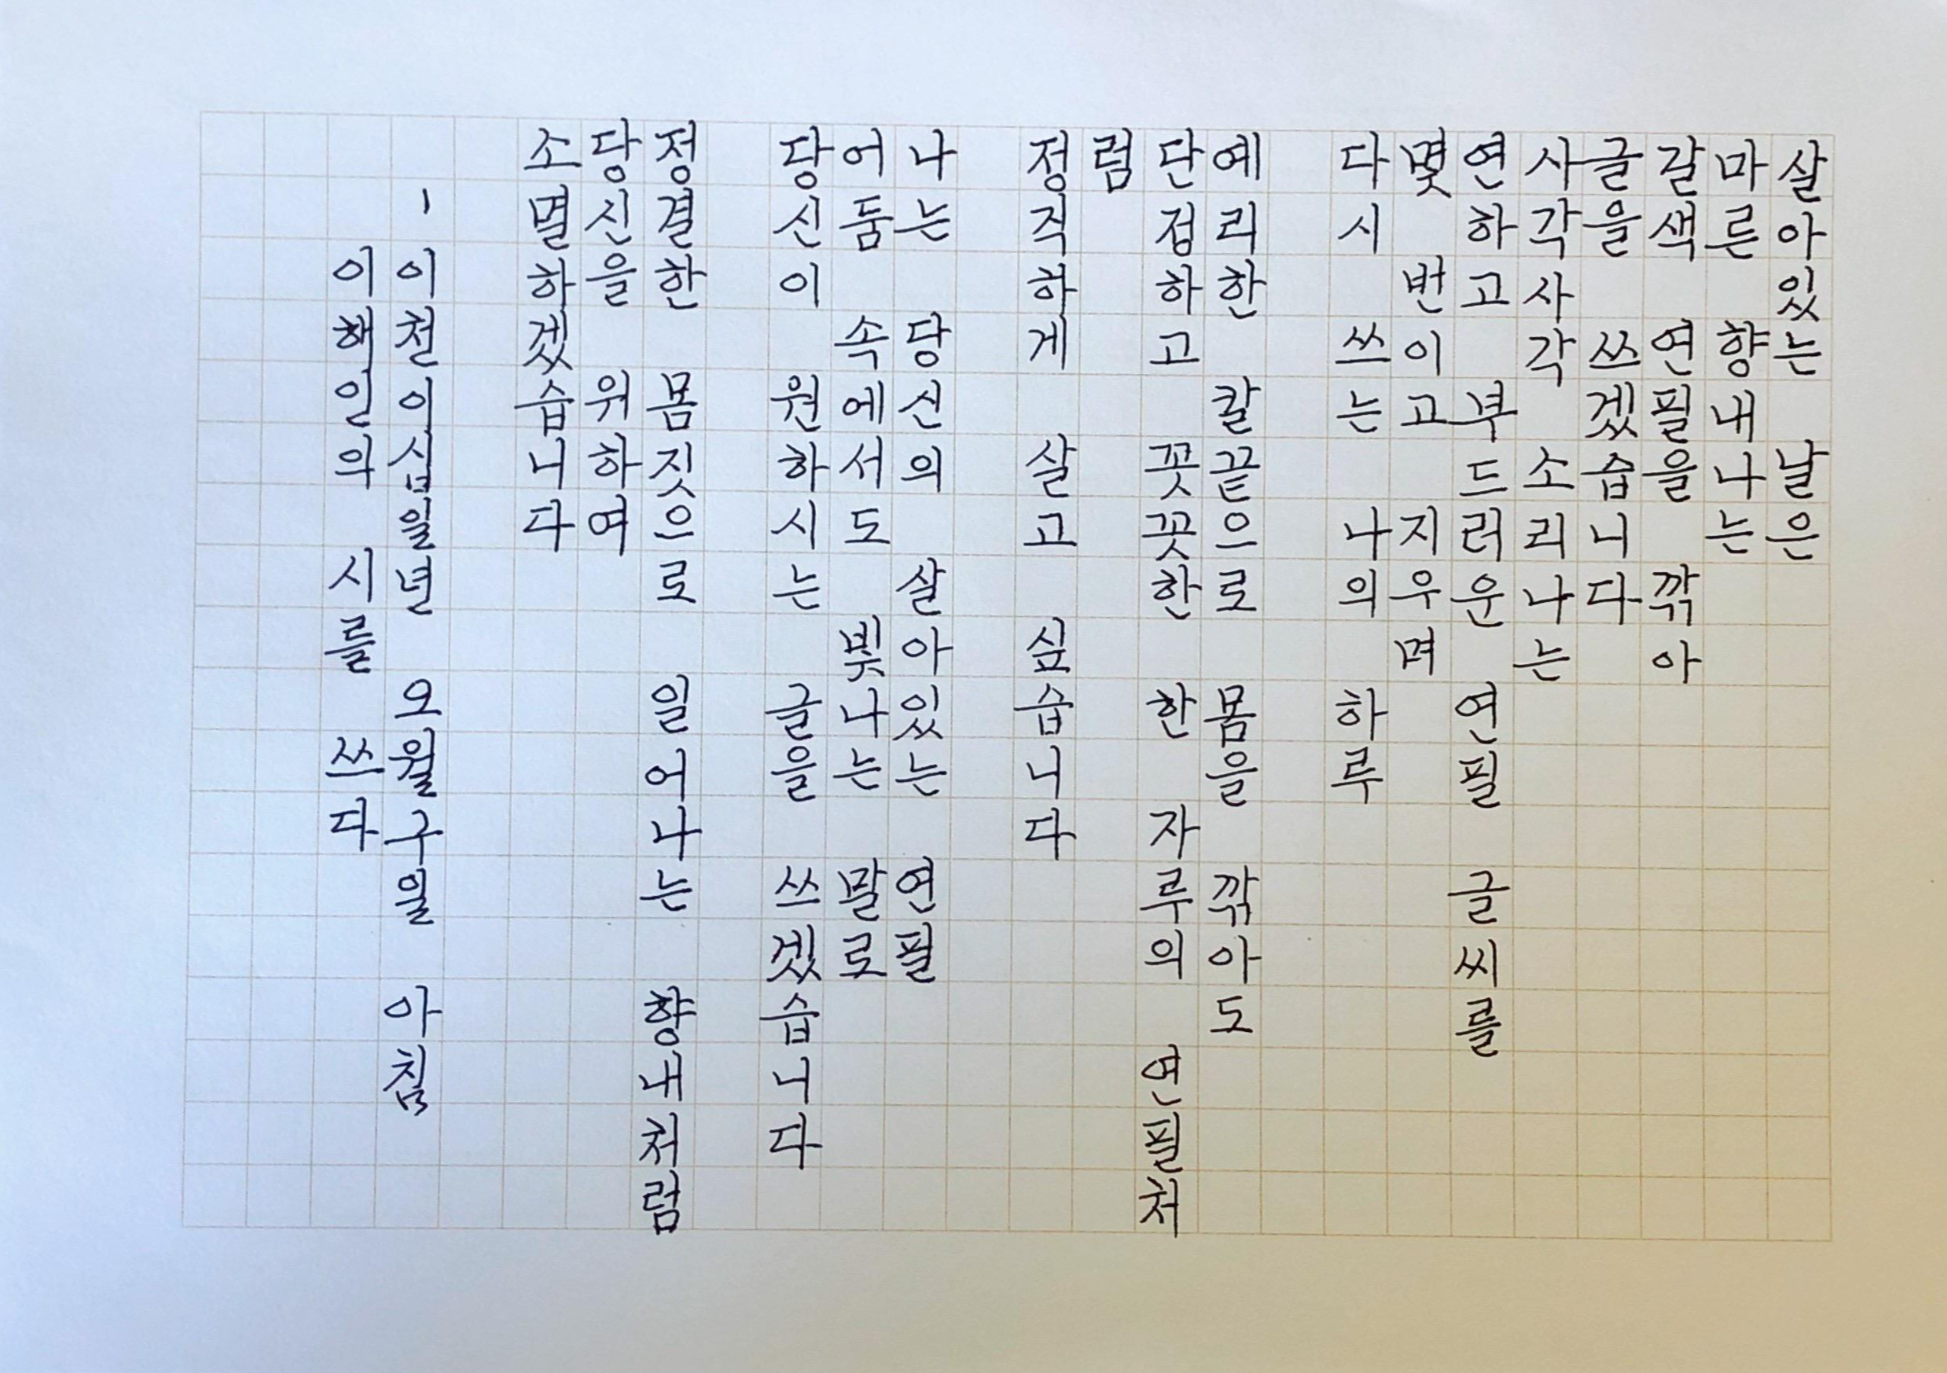 살아있는 날은
마른 향내 나는
갈색 연필을 깎아
글을 쓰겠습니다
사각사각 소리나는
연하고 부드러운 연필 글씨를
몇 번이고 지우며
다시 쓰는 나의 하루
예리한 칼끝으로 몸을 깎아도
단정하고 꼿꼿한 한 자루의 연필처
럼
정직하게 살고 싶습니다
나는 당신의 살아있는 연필
어둠 속에서도 빛나는 말로
당신이 원하시는 글을 쓰겠습니다
정결한 몸짓으로 일어나는 향내처럼
당신을 위하여
소멸하겠습니다
- 이천이십일년 오월구일 아침
이해인의 시를 쓰다